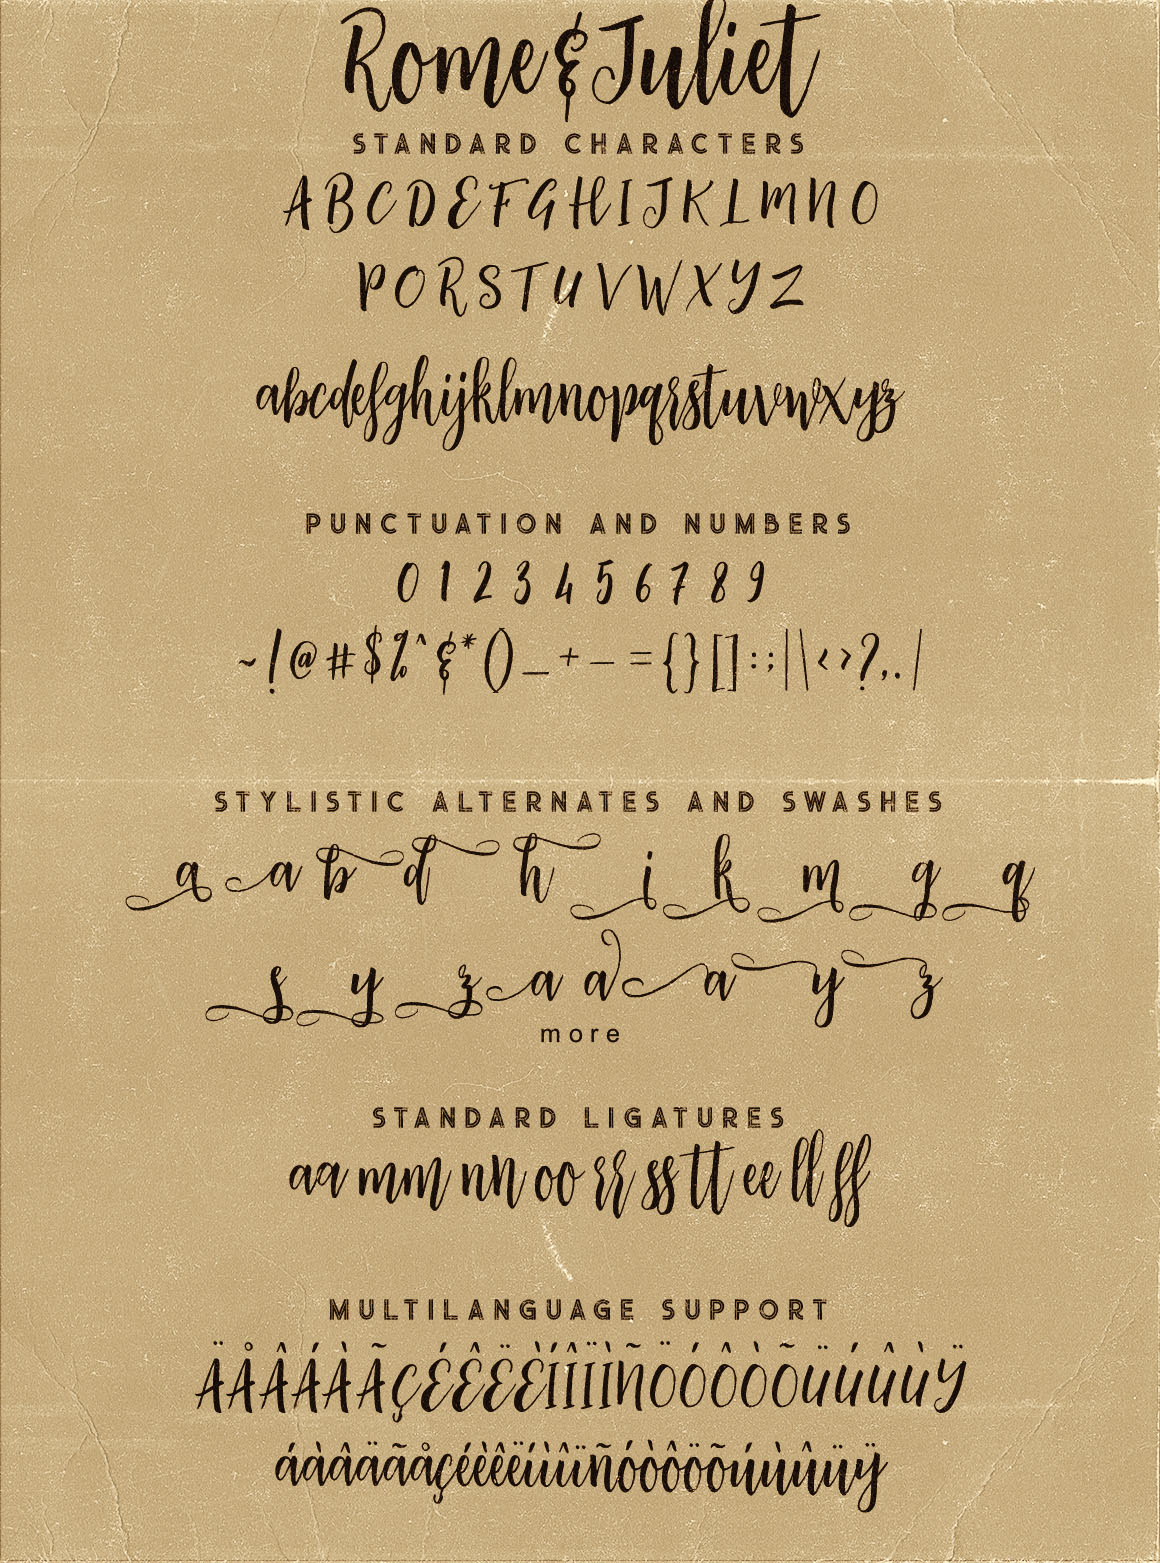 Rome & Juliet
STANDARD CHARACTERS
A B C D E F G H I J K L M N O
P O R S T U V W X Y Z
abcdefghijklmnopqrstuvwxyz
PUNCTUATION AND NUMBERS
0 1 2 3 4 5 6 7 8 9
~ ! @ # $ % ^ & * ( ) _ + – = { } [ ] : ; | \ < > ? , . /
STYLISTIC ALTERNATES AND SWASHES
a a b d h i k m g q
s y z a a a y z
more
STANDARD LIGATURES
aa mm nn oo rr ss tt ee ll ff
MULTILANGUAGE SUPPORT
ÄÅÂÁÀÃÇÉÊËÈÍÎÏÌÑÖÓÔÒÕÜÚÛÙŸ
áàâäãåçéèêëíìîïñóòôöõúùûüÿ